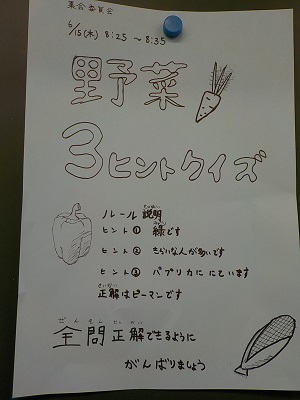 集会委員会
6/15(木) 8:25 ～8:35
野菜
3ヒントクイズ
ルール説明
ヒント① 緑です
ヒント② きらいな人が多いです
ヒント③ パプリカににています
正解はピーマンです
全問正解できるように
がんばりましょう